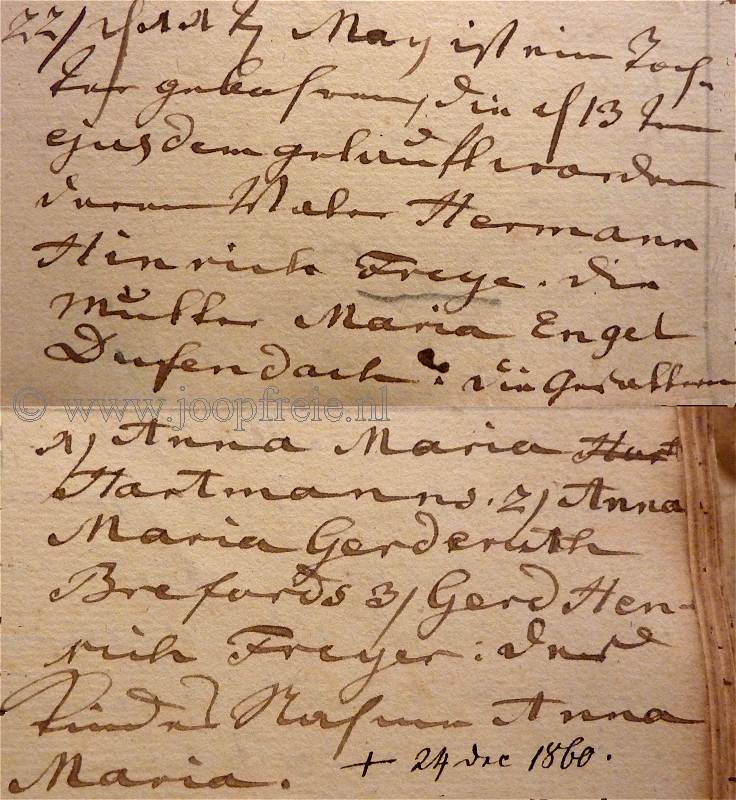 22/ May ist ein Toch-
ter gebohren, die d 13 ten
ejusdem getauft worden
deren Vater Hermann
Hinrich Freye. die
Mutter Maria Engel
Dufendach. die Gevattern
© www.joopfreie.nl
1) Anna Maria Hart
Hartmanns. 2) Anna
Maria Gerderuth
Brefords 3) Gerd Hen-
rich Freyer: des
Kindes Nahme Anna
Maria. + 24 dec 1860.